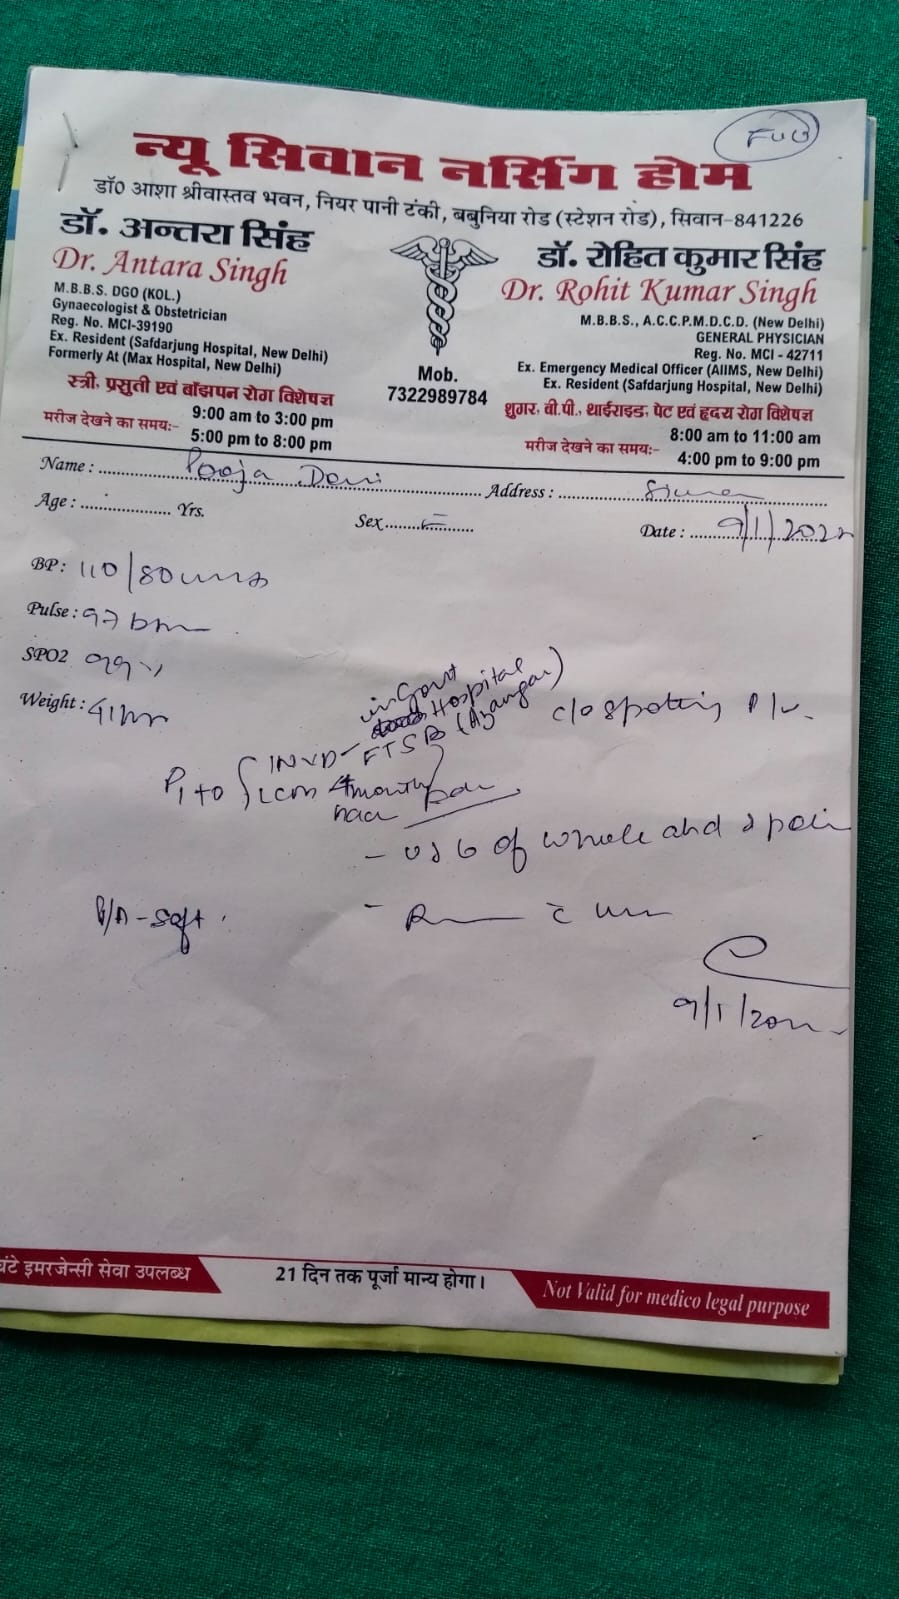 FUG
न्यू सिवान नर्सिंग होम
डॉ0 आशा श्रीवास्तव भवन, नियर पानी टंकी, बबुनिया रोड (स्टेशन रोड), सिवान-841226
डॉ. अन्तरा सिंह
Dr. Antara Singh
M.B.B.S. DGO (KOL.)
Gynaecologist & Obstetrician
Reg. No. MCI-39190
Ex. Resident (Safdarjung Hospital, New Delhi)
Formerly At (Max Hospital, New Delhi)
स्त्री, प्रसुती एवं बाँझपन रोग विशेषज्ञ
मरीज देखने का समय:- 9:00 am to 3:00 pm
5:00 pm to 8:00 pm
Mob.
7322989784
डॉ. रोहित कुमार सिंह
Dr. Rohit Kumar Singh
M.B.B.S., A.C.C.P.M.D.C.D. (New Delhi)
GENERAL PHYSICIAN
Reg. No. MCI - 42711
Ex. Emergency Medical Officer (AIIMS, New Delhi)
Ex. Resident (Safdarjung Hospital, New Delhi)
शुगर, बी.पी., थाईराइड, पेट एवं हृदय रोग विशेषज्ञ
मरीज देखने का समय:- 8:00 am to 11:00 am
4:00 pm to 9:00 pm
Name : Pooja Devi Address : Siwan
Age : Yrs. Sex F Date : 9/1/2022
BP : 110/80
Pulse : 97 bm
SPO2 99%
Weight : 41
in Govt
Hospital
c/o spotting P/V.
1NVD - FTSB
P1+0 LCB 4 month back
of whole abd
P/A - soft
9/1/2022
घंटे इमरजेन्सी सेवा उपलब्ध
21 दिन तक पूर्जा मान्य होगा।
Not Valid for medico legal purpose